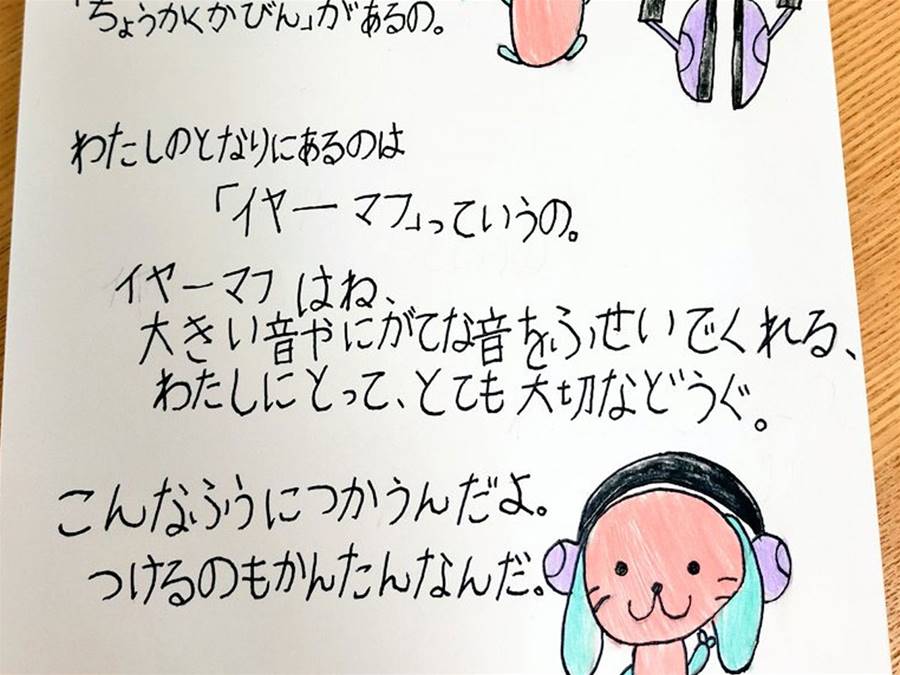 「ちょうかくかびん」があるの。
わたしのとなりにあるのは
「イヤーマフ」っていうの。
イヤーマフはね、
大きい音やにがてな音をふせいでくれる、
わたしにとって、とても大切などうぐ。
こんなふうにつかうんだよ。
つけるのもかんたんなんだ。